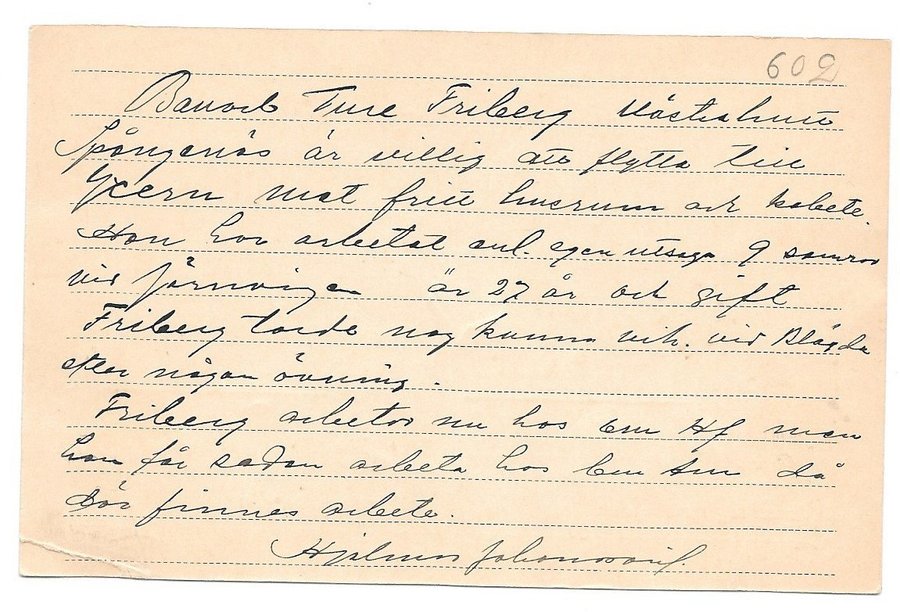 602
Banarb Ture Friberg Västrahult
Spångenäs är villig att flytta till
Ycern mot fritt husrum och kobete.
Han har arbetat enl. egen utsago 9 somrar
vid järnvägen är 27 år och gift
Friberg torde nog kunna vik. vid Blägda
efter någon övning.
Friberg arbetar nu hos bm Hf men
han får sedan arbeta hos bm då
där finnes arbete.
Hjalmar Johansson